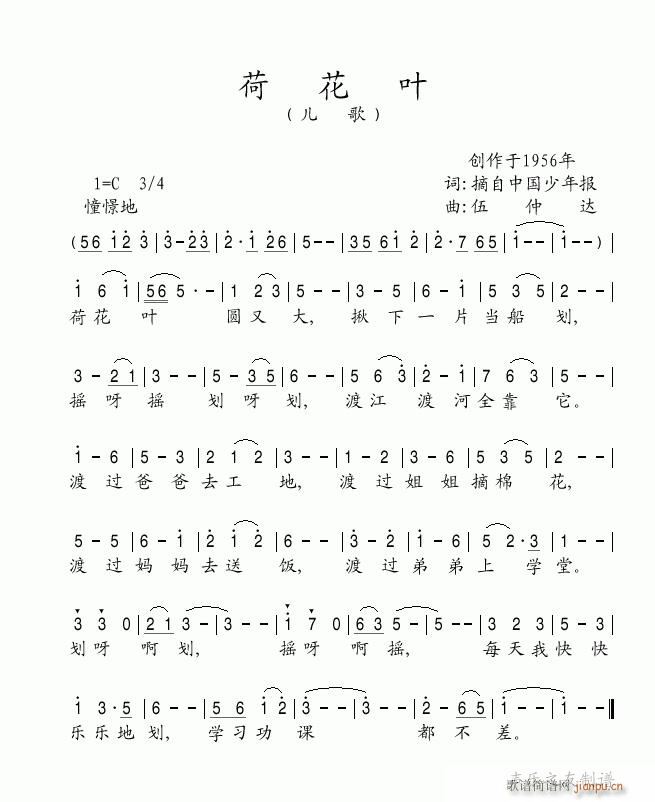 荷 花 叶
(儿 歌)
创作于1956年
1=C 3/4 词:摘自中国少年报
憧憬地 曲:伍 仲 达
(56 12 3 | 3-23 | 2·1 26 | 5-- | 35 61 2 | 2·7 65 | 1-- | 1--) |
1 6 1 | 565·- | 1 2 3 | 5-- | 3-5 | 6-1 | 5 3 5 | 2-- |
荷花 叶 圆又 大, 揪 下 一 片 当船 划,
3-21 | 3-- | 5-35 | 6-- | 5 6 3 | 2-1 | 7 6 3 | 5-- |
摇 呀 摇 划 呀 划, 渡江 渡 河全靠 它。
1-6 | 5-3 | 2 1 2 | 3-- | 1-2 | 3-6 | 5 3 5 | 2-- |
渡 过 爸 爸 去 工 地, 渡 过 姐 姐 摘棉 花,
5-5 | 6-1 | 2 1 2 | 6-- | 3-2 | 1-6 | 5 2·3 | 1-- |
渡 过 妈 妈 去 送 饭, 渡 过 弟 弟 上 学 堂。
3 3 0 | 21 3- | 3-- | 1 7 0 | 63 5- | 5-- | 5 2 3 | 5-3 |
划呀 啊 划, 摇呀 啊 摇, 每天我快 快
1 3·5 | 6-- | 56 12 | 3-- | 3-- | 2-65 | 1-- | 1-- ‖
乐 乐地 划, 学习 功 课 都 不 差。
声乐之友制谱
歌谱简谱网
jianpu.cn